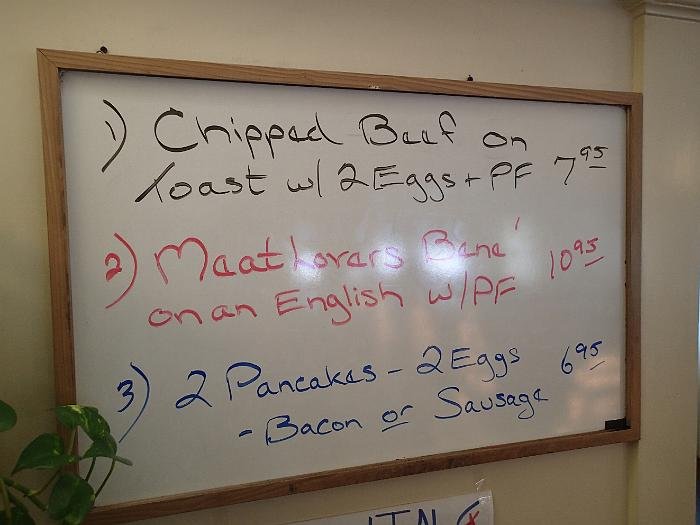 1) Chipped Beef on
Toast w/ 2 Eggs + PF 7 95
2) Meat Lovers Bene' 10 95
on an English w/PF
3) 2 Pancakes - 2 Eggs 6 95
- Bacon or Sausage